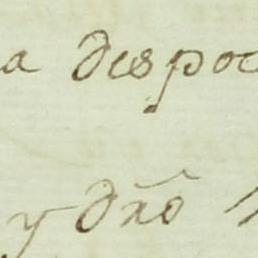 a despoc
y dho